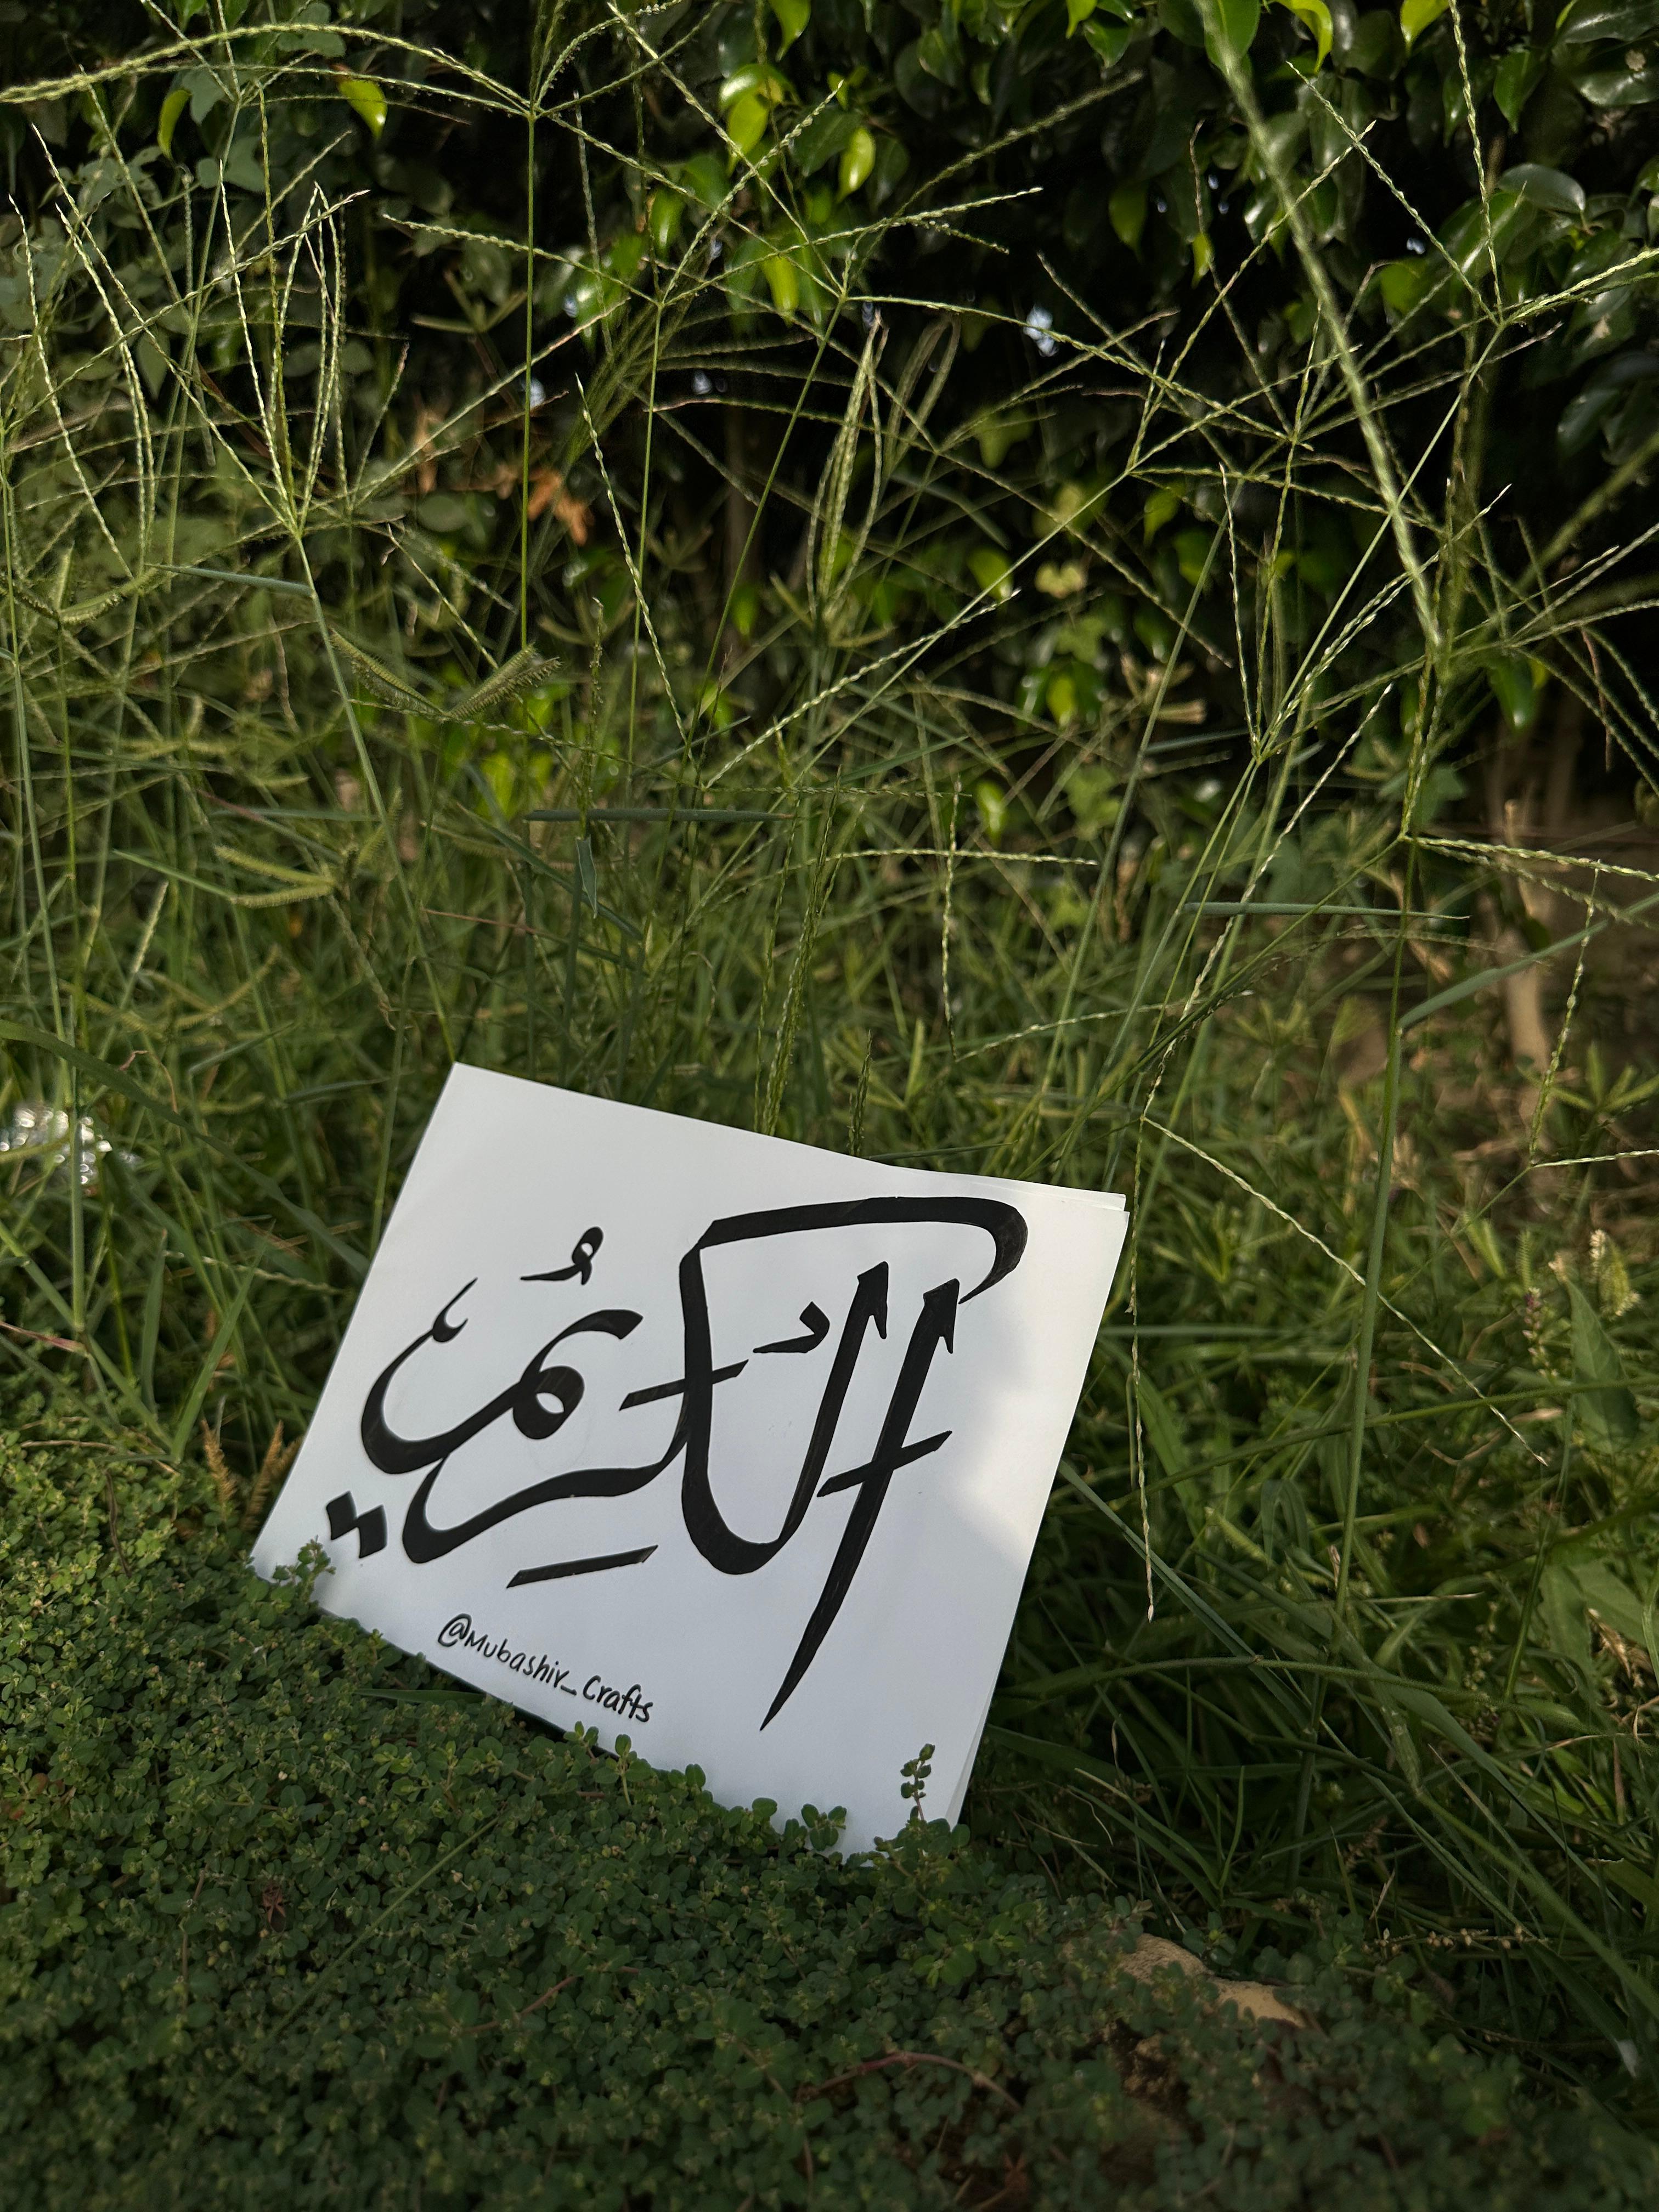 الكَرِيمُ
@Mubashir_Crafts